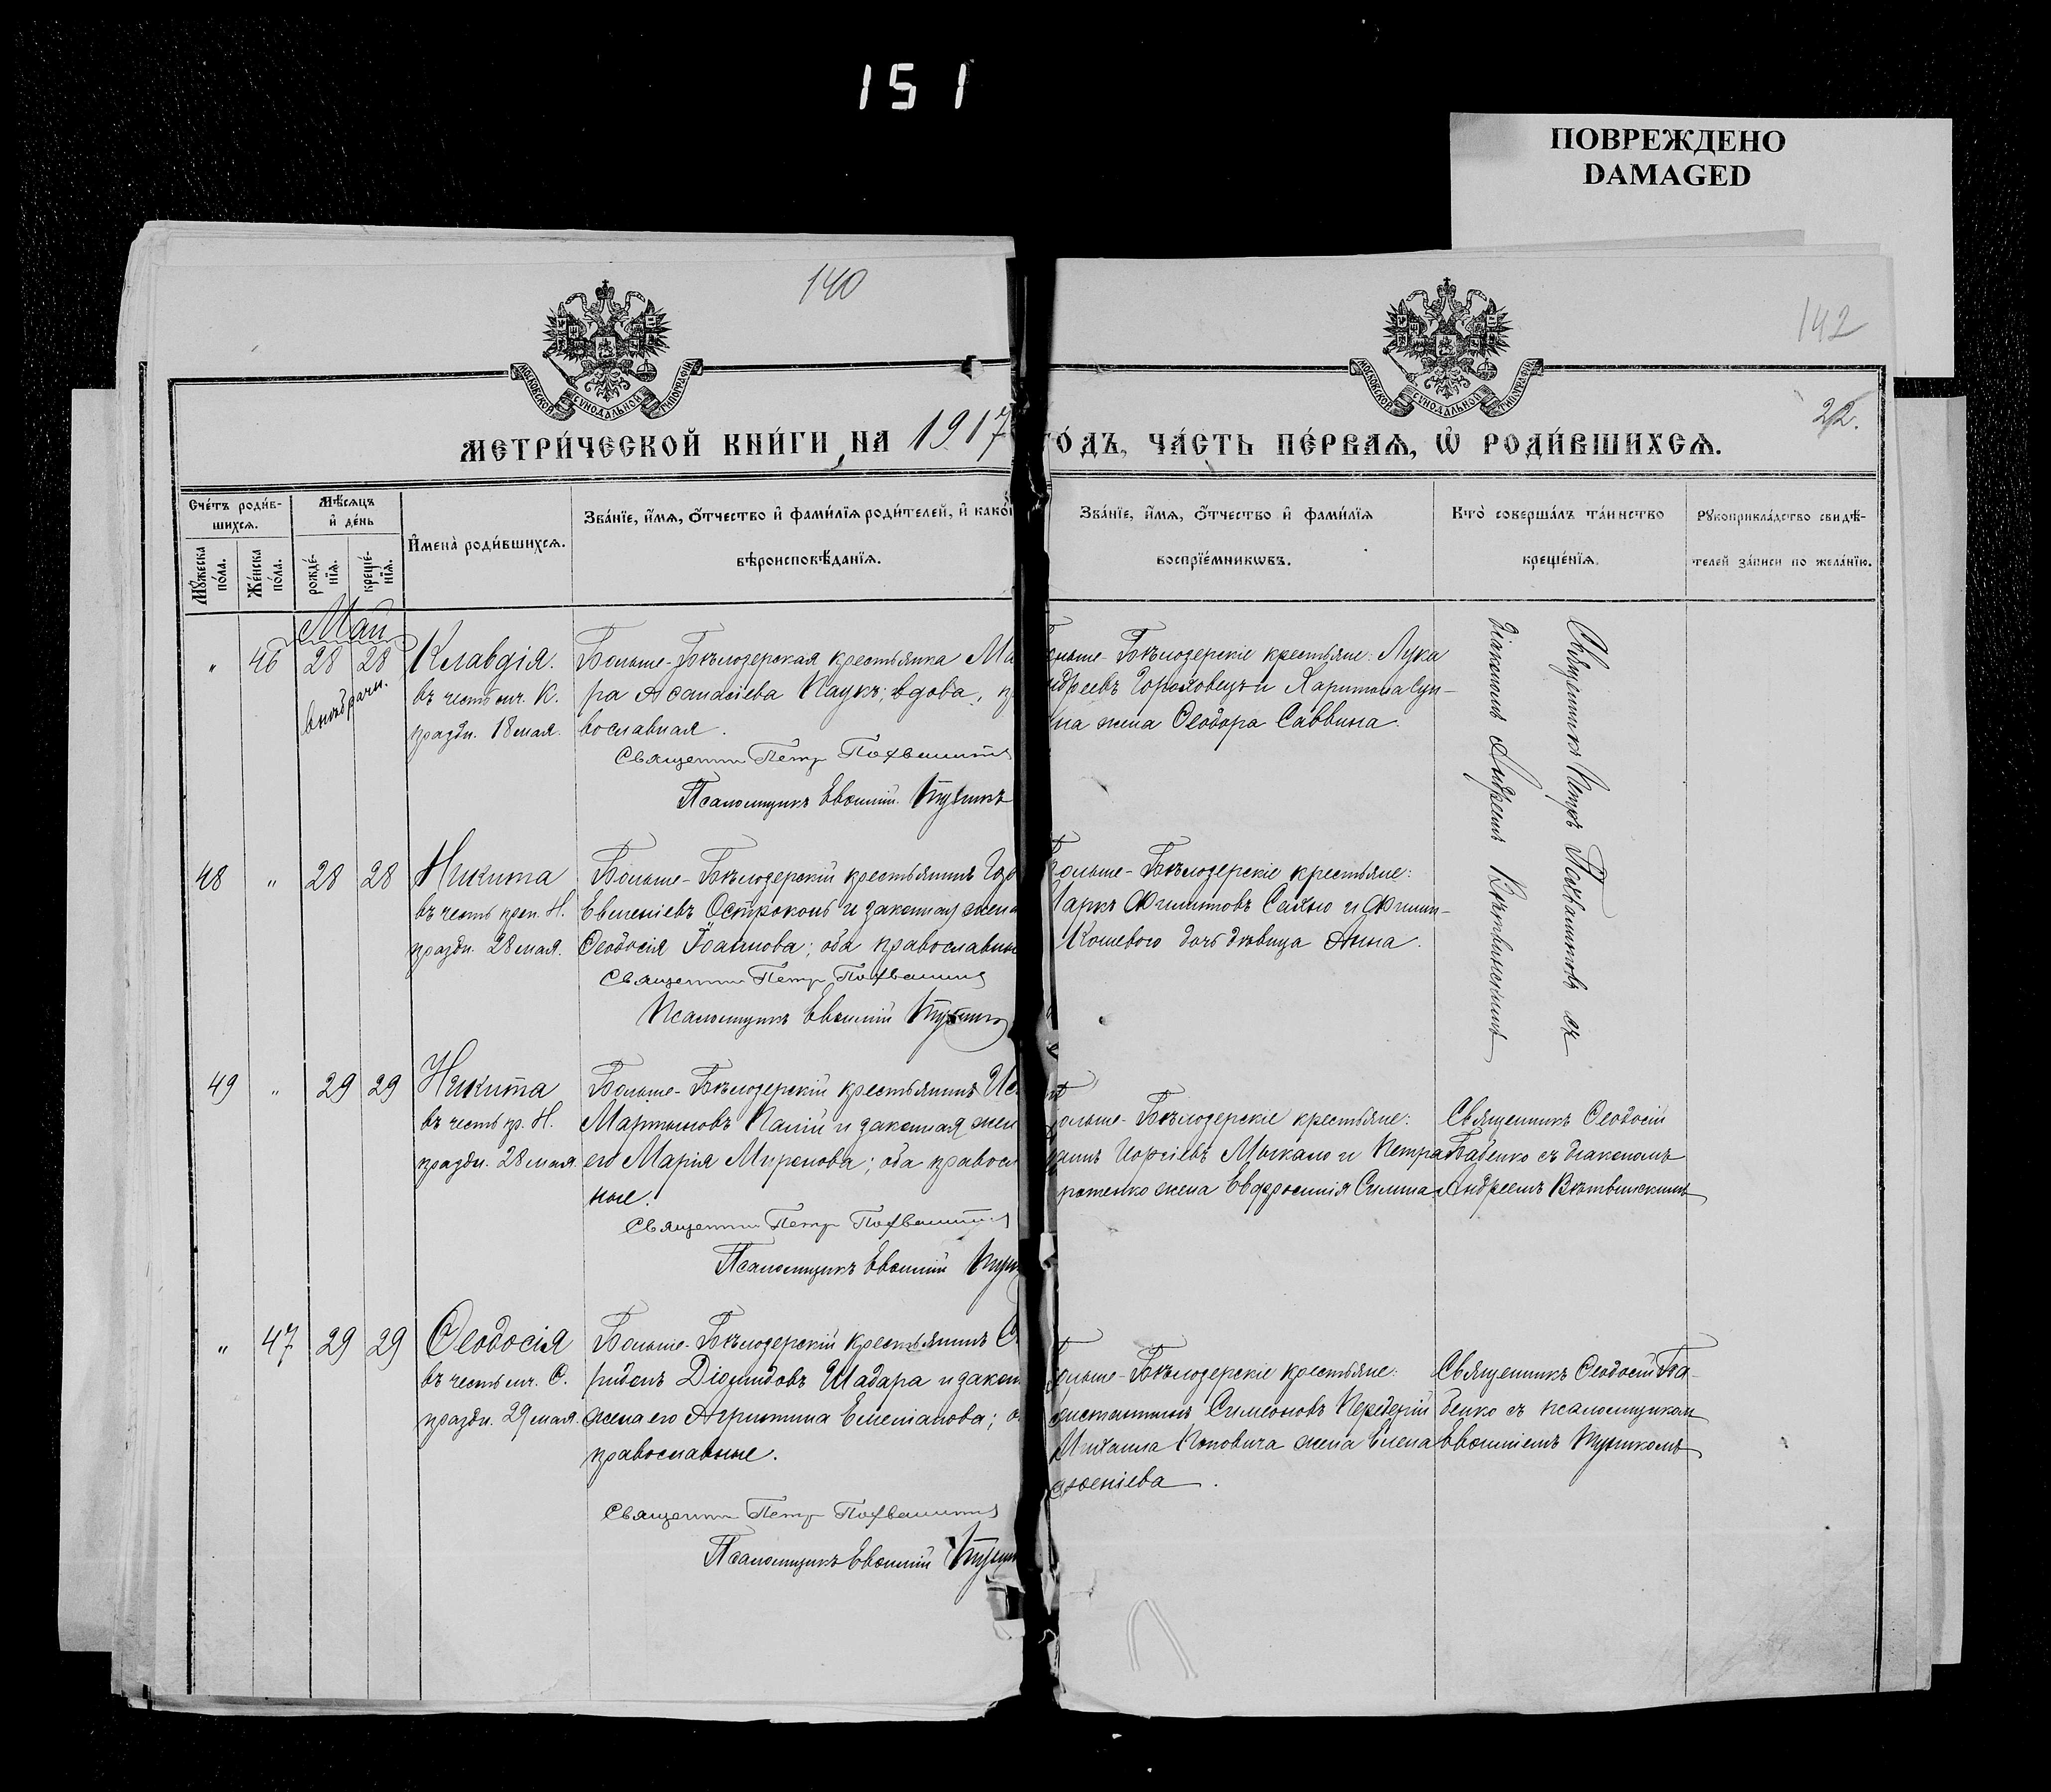 151
ПОВРЕЖДЕНО
DAMAGED
140
142
22.
МОСКОВСКОЙ СѴНОДАЛЬНОЙ ТИПОГРАФІИ
МОСКОВСКОЙ СѴНОДАЛЬНОЙ ТИПОГРАФІИ
МЕТРИ́ЧЕСКОЙ КНИ́ГИ НА 1917
ГО́ДЪ, ЧА́СТЬ ПЕ́РВАѦ, Ѡ РОДИ́ВШИХСѦ.
Сче́тъ роди́в-
шихсѧ.
Мꙋ́жеска
по́ла.
Же́нска
по́ла.
Мѣ́сѧцъ
и҆ де́нь
рожде́-
нїѧ.
креще́-
нїѧ.
И҆мена̀ роди́вшихсѧ.
Зва́нїе, и҆́мѧ, ѻ҆́тчество и҆ фами́лїѧ роди́телей, и҆ како́
вѣроисповѣ́данїѧ.
Зва́нїе, и҆́мѧ, ѻ҆́тчество и҆ фами́лїѧ
воспрїе́мникѡвъ.
Кто̀ соверша́лъ та́инство
креще́нїѧ.
Рꙋкоприкла́дство свидѣ́-
телей за́писи по жела́нїю.
Май
" 46 28 28
внѣбрачн.
Клавдія.
въ честь мч. К.
праздн. 18 мая.
Больше-Бѣлозерская крестьянка Ма
ра Аѳанасіева Паукъ; вдова, пр
вославная.
Священн Петр Похвалитъ
Псаломщикъ Евѳимій
ольше-Бѣлозерскіе крестьяне: Лука
ндреевъ Гороховецъ и Харитона Сун-
на жена Ѳеодора Саввина.
Священникъ Петръ Похвалитовъ съ
діакономъ Андреемъ Вѣтвинскимъ
48 " 28 28
Никита
въ честь преп. Н.
праздн. 28 мая.
Больше-Бѣлозерскій крестьянинъ
Евменіевъ Остроконь и законная жена
Ѳеодосія Іоаннова; оба православны
Священн Петр
Псаломщикъ Евѳимій
ольше-Бѣлозерскіе крестьяне:
Маркъ Филипповъ Сахно и Филип-
Кошевого дочь дѣвица Анна.
49 " 29 29
Никита
въ честь пр. Н.
праздн. 28 мая.
Больше-Бѣлозерскій крестьянинъ Ис
Мартыновъ Палій и законная жен
его Марія Миронова; оба правосл
ные.
Священн Петр
Псаломщикъ Евѳимій
ольше-Бѣлозерскіе крестьяне:
Георгіевъ Мыкало и Петра
жена Евфросинія
Священникъ Ѳеодосій
Бабенко съ діакономъ
Андреемъ Вѣтвинскимъ
" 47 29 29
Ѳеодосія
въ честь мч. Ѳ.
праздн. 29 мая.
Больше-Бѣлозерскій крестьянинъ С
ридонъ Діомидовъ Шадара и закон
жена его Агриппина Емеліанова; о
православные.
Священн Петр
Псаломщикъ Евѳимій
ольше-Бѣлозерскіе крестьяне:
онстантинъ Симеоновъ Передерій
Михаила Поповича жена Елена
Священникъ Ѳеодосій Ба-
бенко съ псаломщикомъ
Евѳиміемъ